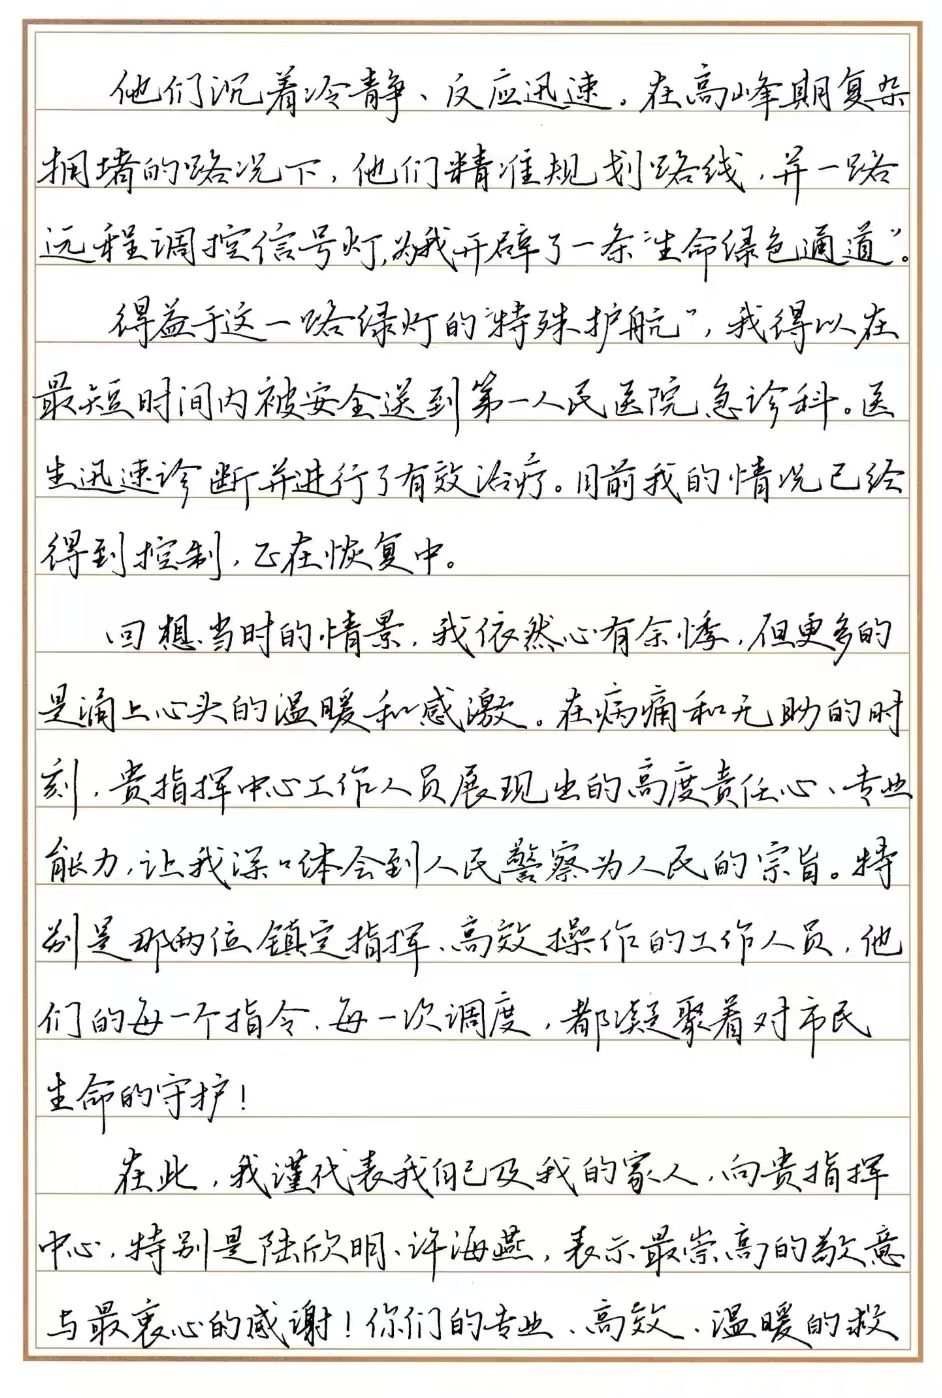 他们沉着冷静、反应迅速。在高峰期复杂
拥堵的路况下，他们精准规划路线，并一路
远程调控信号灯，为我开辟了一条“生命绿色通道”。
得益于这一路绿灯的“特殊护航”，我得以在
最短时间内被安全送到第一人民医院急诊科。医
生迅速诊断并进行了有效治疗。目前我的情况已经
得到控制，正在恢复中。
回想当时的情景，我依然心有余悸，但更多的
是涌上心头的温暖和感激。在病痛和无助的时
刻，贵指挥中心工作人员展现出的高度责任心、专业
能力，让我深深体会到人民警察为人民的宗旨。特
别是那两位镇定指挥、高效操作的工作人员，他
们的每一个指令、每一次调度，都凝聚着对市民
生命的守护！
在此，我谨代表我自己及我的家人，向贵指挥
中心，特别是陆欣明、许海燕，表示最崇高的敬意
与最衷心的感谢！你们的专业、高效、温暖的救